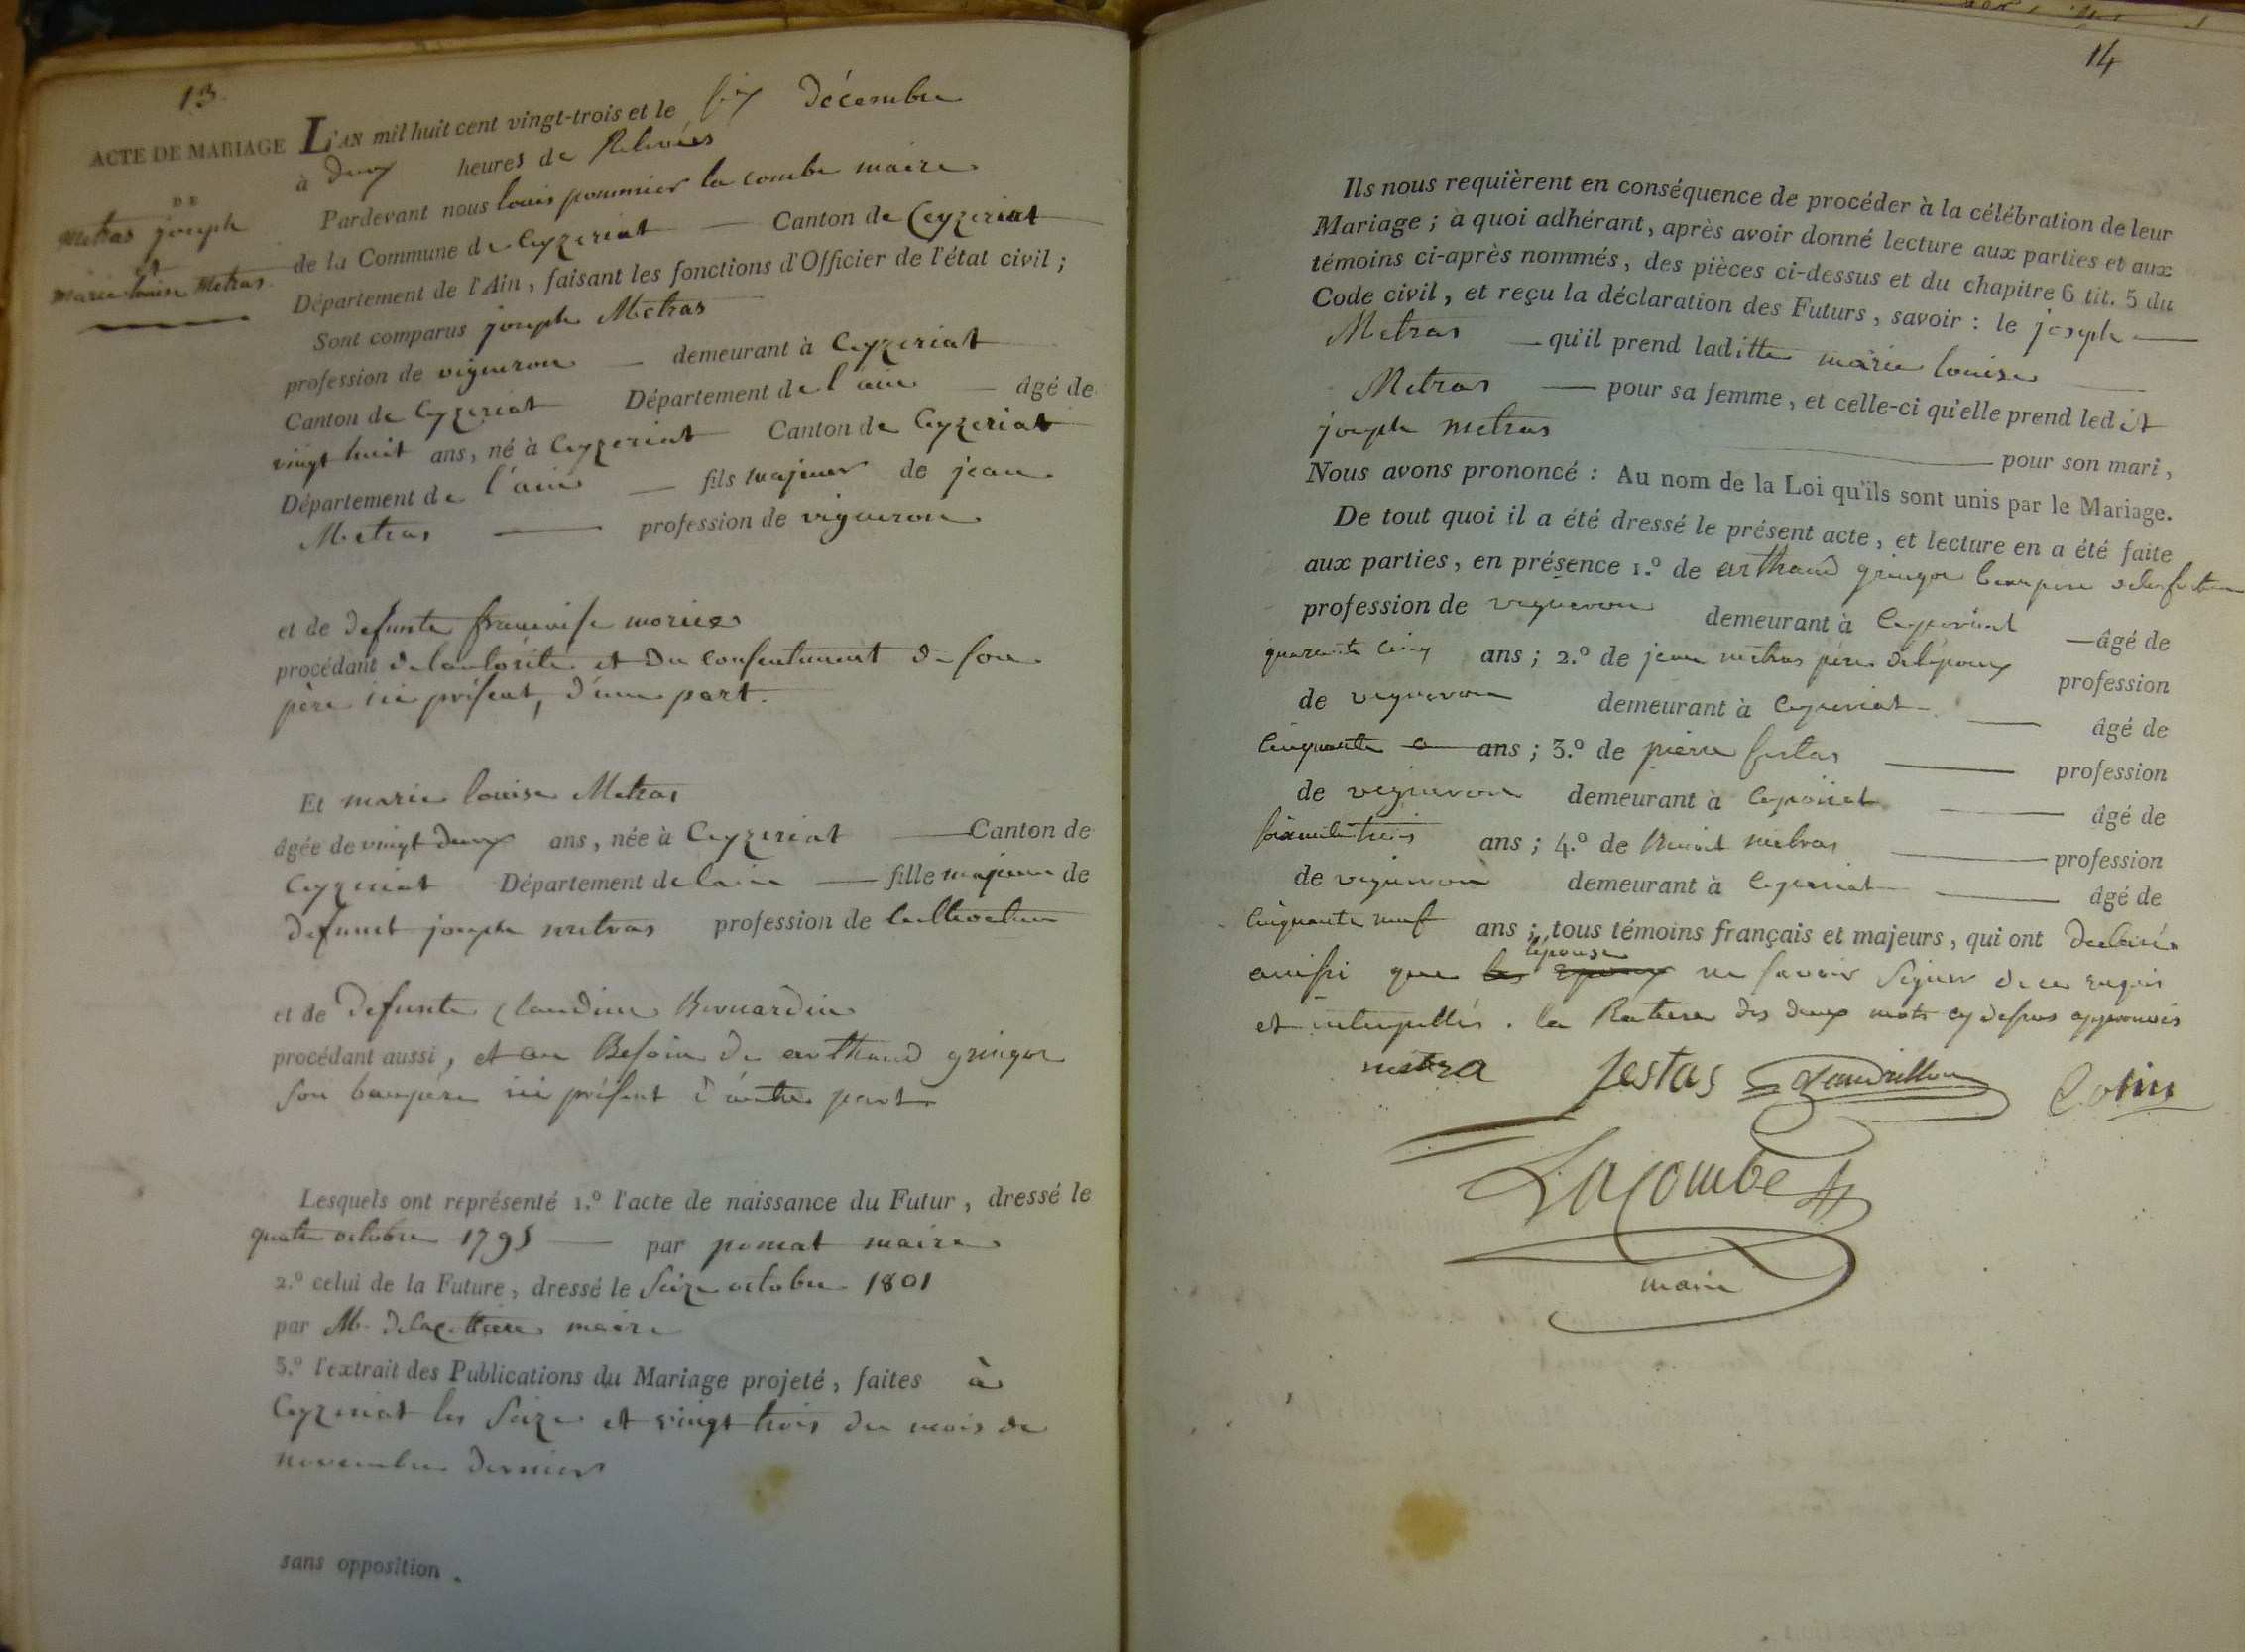 13.
ACTE DE MARIAGE
DE
Metras joseph
et
marie louise Metras.
L'AN mil huit cent vingt-trois et le six décembre
à deux heures de Relevées
Pardevant nous louis pommier la combe maire
de la Commune de Ceyzeriat Canton de Ceyzeriat
Département de l'Ain, faisant les fonctions d'Officier de l'état civil ;
Sont comparus joseph Metras
profession de vigneron demeurant à Ceyzeriat
Canton de Ceyzeriat Département de l'ain âgé de
vingt huit ans, né à Ceyzeriat Canton de Ceyzeriat
Département de l'ain fils majeur de jean
Metras profession de vigneron
et de defunte francoise
procédant de lautorité et du consentement de son
père ici présent, d'une part.
Et marie louise Metras
âgée de vingt deux ans, née à Ceyzeriat Canton de
Ceyzeriat Département de lain fille majeure de
defunt joseph metras profession de cultivateur
et de defunte Claudine Bernardin
procédant aussi, et au Besoin de arthaud gringoz
son beaupère ici présent d'autre part
Lesquels ont représenté 1.º l'acte de naissance du Futur, dressé le
quatre octobre 1795 par maire
2.º celui de la Future, dressé le seize octobre 1801
par M. maire
3.º l'extrait des Publications du Mariage projeté, faites à
Ceyzeriat les seize et vingt trois du mois de
novembre dernier
sans opposition.
14
Ils nous requièrent en conséquence de procéder à la célébration de leur
Mariage ; à quoi adhérant, après avoir donné lecture aux parties et aux
témoins ci-après nommés, des pièces ci-dessus et du chapitre 6 tit. 5 du
Code civil, et reçu la déclaration des Futurs, savoir : le joseph
Metras qu'il prend laditte marie louise
Metras pour sa femme, et celle-ci qu'elle prend ledit
joseph metras pour son mari,
Nous avons prononcé : Au nom de la Loi qu'ils sont unis par le Mariage.
De tout quoi il a été dressé le présent acte, et lecture en a été faite
aux parties, en présence 1.º de arthaud gringoz beaupere
profession de vigneron demeurant à Ceyzeriat âgé de
quarante cinq ans ; 2.º de jean metras père de lépoux profession
de vigneron demeurant à Ceyzeriat âgé de
cinquante ans ; 3.º de pierre profession
de vigneron demeurant à Ceyzeriat âgé de
soixante trois ans ; 4.º de Benoit metras profession
de vigneron demeurant à Ceyzeriat âgé de
cinquante neuf ans ; tous témoins français et majeurs, qui ont declaré
ainsi que les époux lépouse ne savoir signer de ce requis
et interpellés. la Rature des deux mots cy dessus approuvés
metra Jestas Cotin
Lacombe
maire